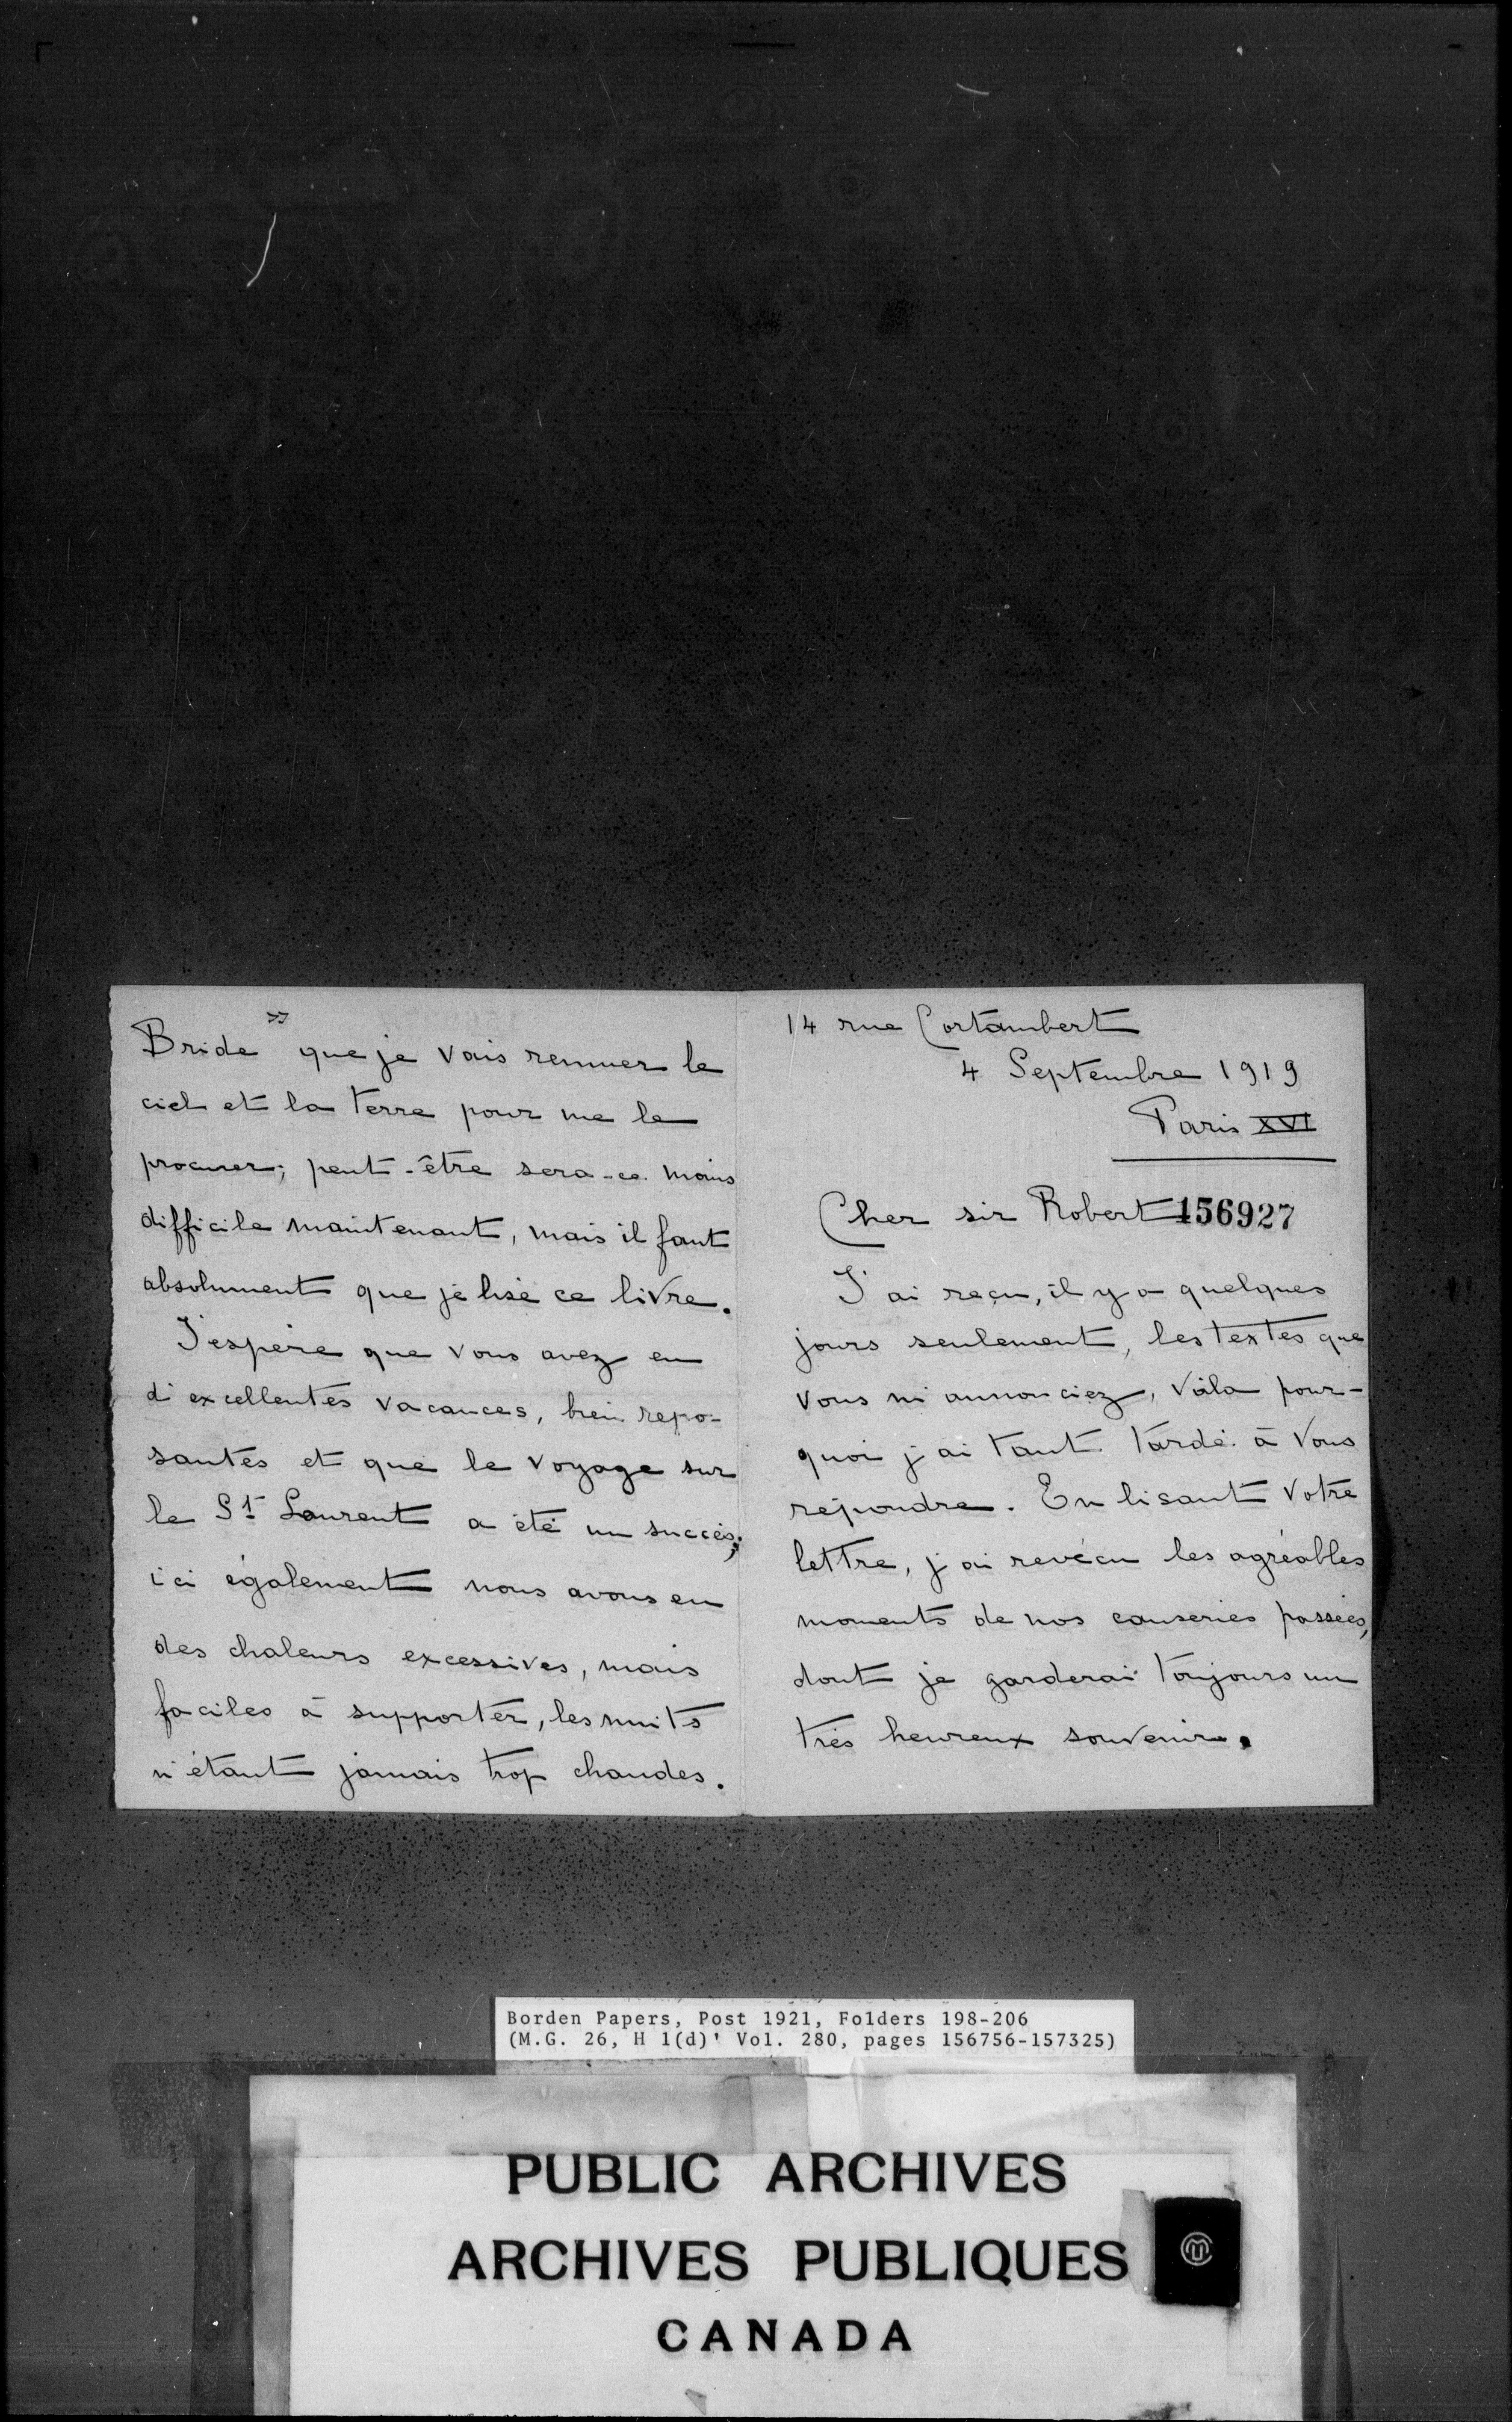 Bride" que je vais remuer le
ciel et la terre pour me le
procurer; peut-être sera-ce moins
difficile maintenant, mais il faut
absolument que je lise ce livre.
J'espère que vous avez eu
d'excellentes vacances, bien repo-
santes et que le voyage sur
le St Laurent a été un succès;
ici également nous avons eu
des chaleurs excessives, mais
faciles à supporter, les nuits
n'étant jamais trop chaudes.
14 rue Cortambert
4 Septembre 1919
Paris XVI
Cher sir Robert 156927
J'ai reçu, il y a quelques
jours seulement, les textes que
vous m'annonciez, voila pour-
quoi j'ai tant tardé à vous
répondre. En lisant votre
lettre, j'ai revécu les agréables
moments de nos causeries passées,
dont je garderai toujours un
très heureux souvenir.
Borden Papers, Post 1921, Folders 198-206
(M.G. 26, H 1(d)' Vol. 280, pages 156756-157325)
PUBLIC ARCHIVES
ARCHIVES PUBLIQUES
CANADA